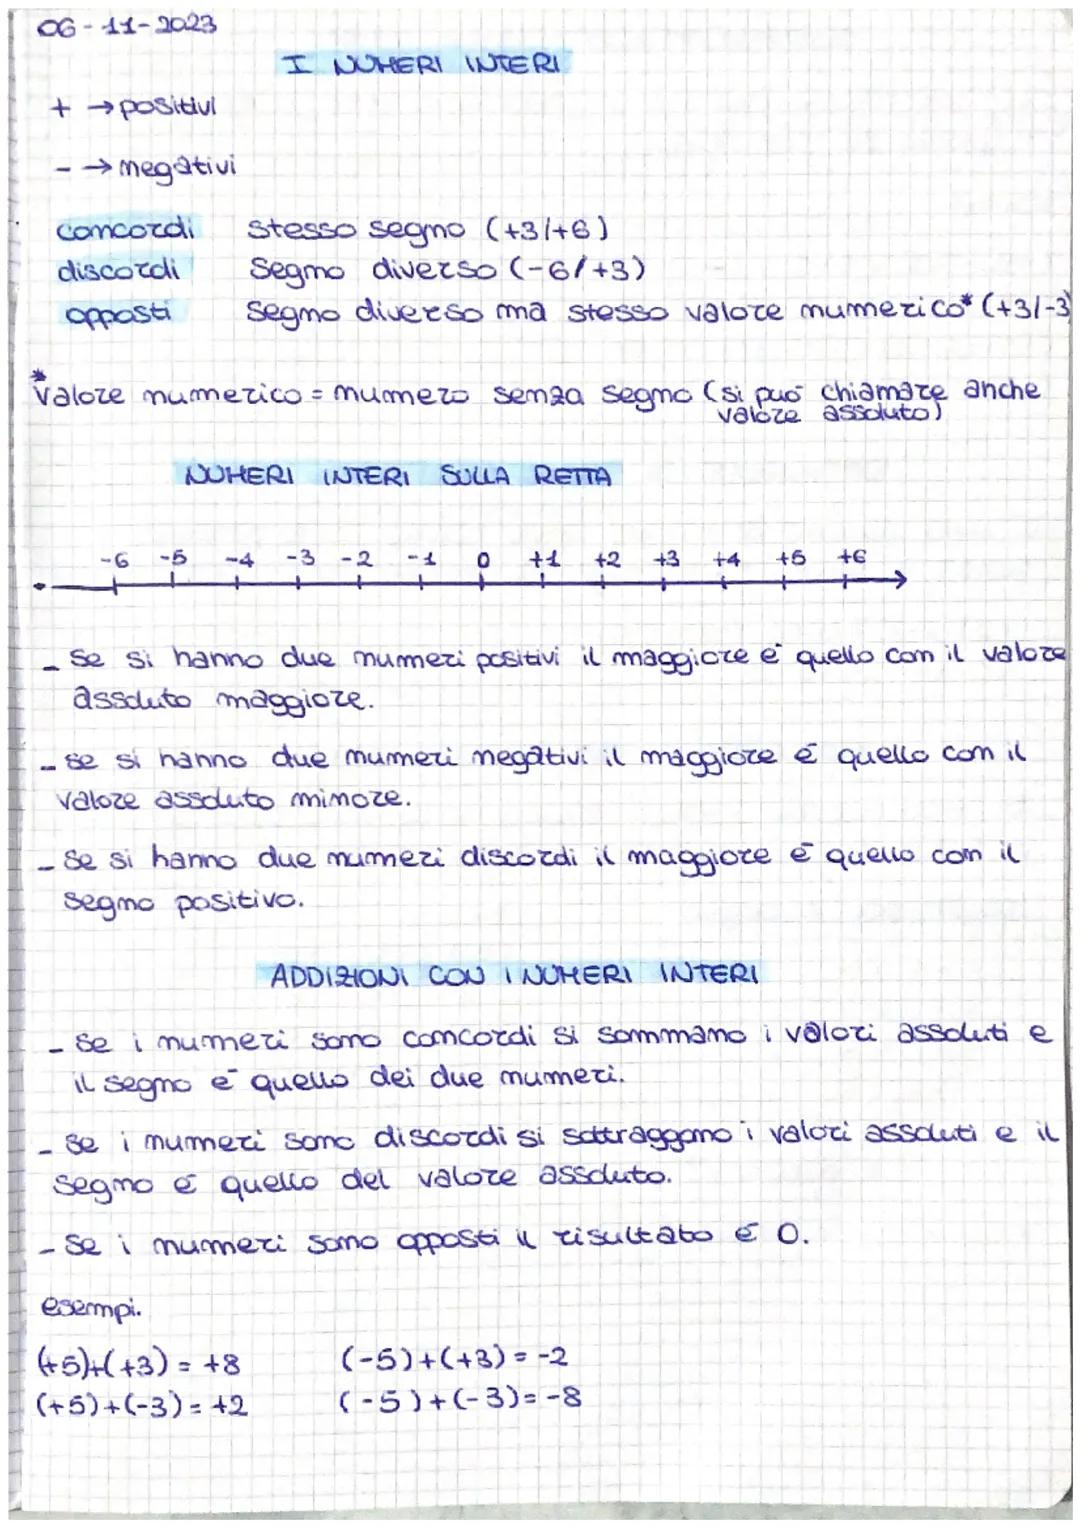 06-11-2023
I NUMERI INTERI
+ → positivi
- → negativi
concordi stesso segno (+3/+6)
discordi Segno diverso (-6/+3)
opposti Segno diverso ma stesso valore numerico* (+3/-3)
*valore numerico = numero senza segno (si può chiamare anche
valore assoluto)
NUMERI INTERI SULLA RETTA
-6 -5 -4 -3 -2 -1 0 +1 +2 +3 +4 +5 +6
- Se si hanno due numeri positivi il maggiore è quello con il valore
assoluto maggiore.
- se si hanno due numeri negativi il maggiore é quello con il
valore assoluto minore.
- Se si hanno due numeri discordi il maggiore è quello con il
segno positivo.
ADDIZIONI CON I NUMERI INTERI
- Se i numeri sono concordi si sommano i valori assoluti e
il segno è quello dei due numeri.
- Se i numeri sono discordi si sottraggono i valori assoluti e il
segno é quello del valore assoluto.
- Se i numeri sono opposti il risultato é 0.
esempi.
(+5)+(+3) = +8 (-5)+(+3) = -2
(+5)+(-3) = +2 (-5)+(-3) = -8